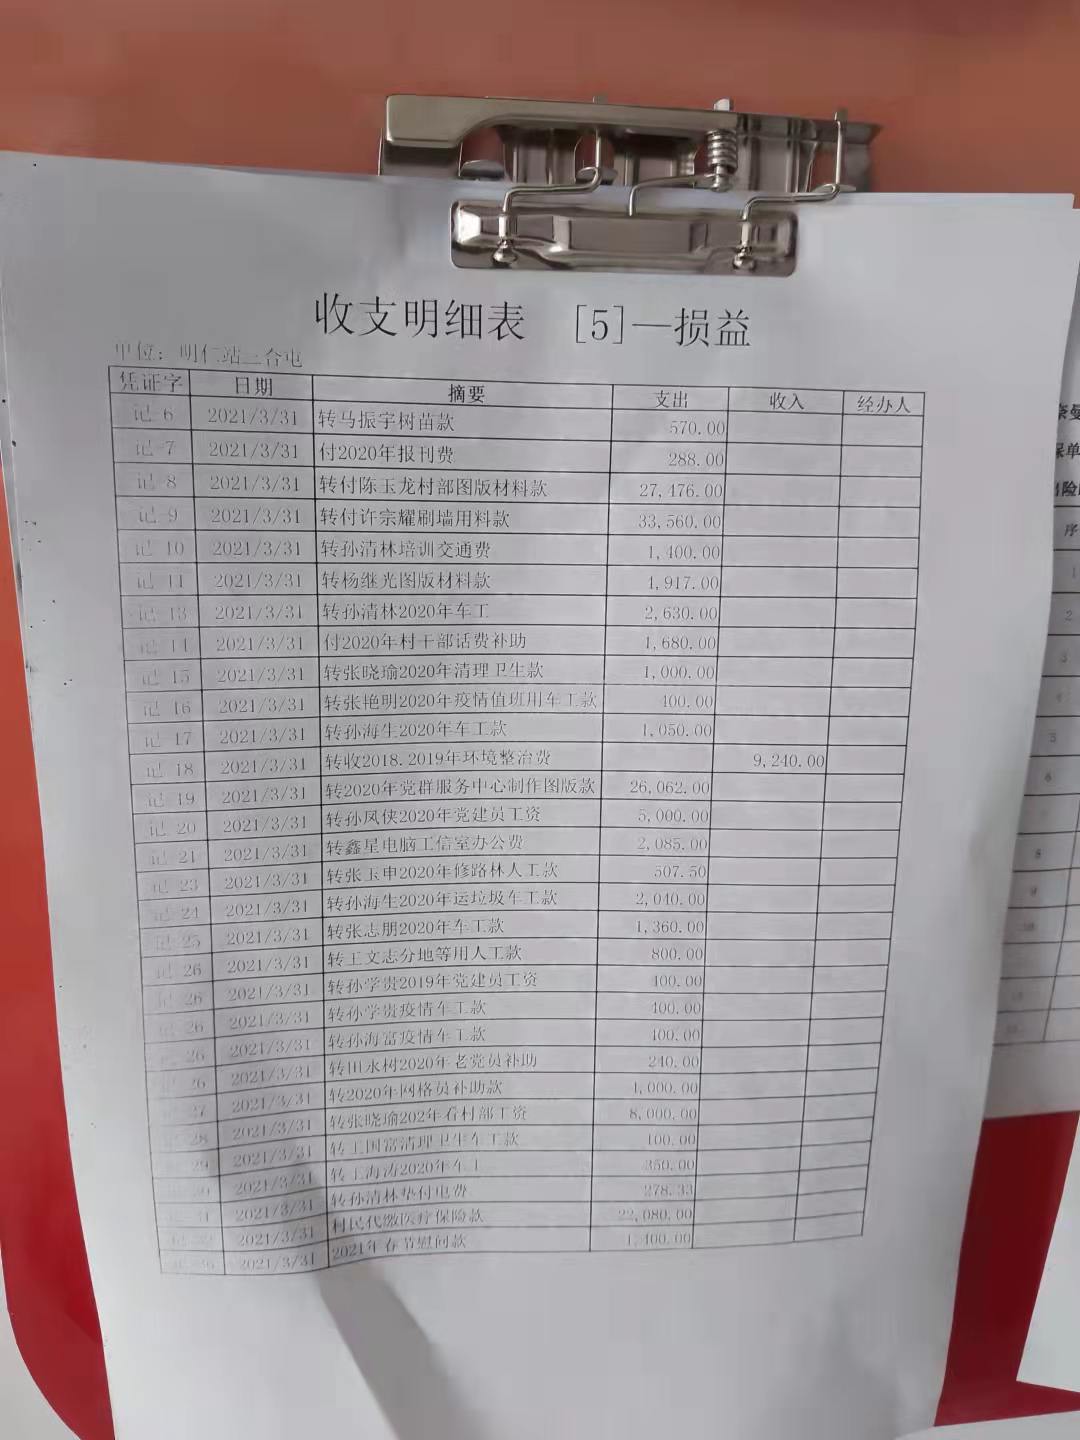 收支明细表 [5]—损益
单位：明仁站三合屯
凭证字 日期 摘要 支出 收入 经办人
记-6 2021/3/31 转马振宇树苗款 570.00
记-7 2021/3/31 付2020年报刊费 288.00
记-8 2021/3/31 转付陈玉龙村部图版材料款 27,476.00
记-9 2021/3/31 转付许宗耀刷墙用料款 33,560.00
记-10 2021/3/31 转孙清林培训交通费 1,400.00
记-11 2021/3/31 转杨继光图版材料款 4,917.00
记-13 2021/3/31 转孙清林2020年车工 2,630.00
记-14 2021/3/31 付2020年村干部话费补助 1,680.00
记-15 2021/3/31 转张晓瑜2020年清理卫生款 1,000.00
记-16 2021/3/31 转张艳明2020年疫情值班用车工款 400.00
记-17 2021/3/31 转孙海生2020年车工款 1,050.00
记-18 2021/3/31 转收2018.2019年环境整治费 9,240.00
记-19 2021/3/31 转2020年党群服务中心制作图版款 26,062.00
记-20 2021/3/31 转孙凤侠2020年党建员工资 5,000.00
记-21 2021/3/31 转鑫星电脑工信室办公费 2,085.00
记-23 2021/3/31 转张玉申2020年修路林人工款 507.50
记-24 2021/3/31 转孙海生2020年运垃圾车工款 2,040.00
记-25 2021/3/31 转张志朋2020年车工款 1,360.00
记-26 2021/3/31 转王文志分地等用人工款 800.00
记-26 2021/3/31 转孙学贵2019年党建员工资 400.00
记-26 2021/3/31 转孙学贵疫情车工款 400.00
记-26 2021/3/31 转孙海富疫情车工款 400.00
记-26 2021/3/31 转田永树2020年老党员补助 240.00
记-27 2021/3/31 转2020年网格员补助款 4,000.00
记-28 2021/3/31 转张晓瑜202年看村部工资 8,000.00
记-29 2021/3/31 转王国富清理卫生车工款 400.00
2021/3/31 转王海涛2020年车工 350.00
记-31 2021/3/31 转孙清林垫付电费 278.33
2021/3/31 村民代缴医疗保险款 22,080.00
2021/3/31 2021年春节慰问款 1,400.00
奈曼
保单
出险
序
1
2
3
4
5
6
8
9
10